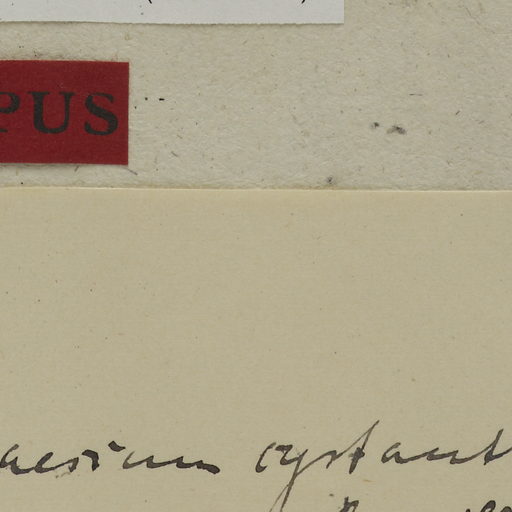 PUS
aesium cystant